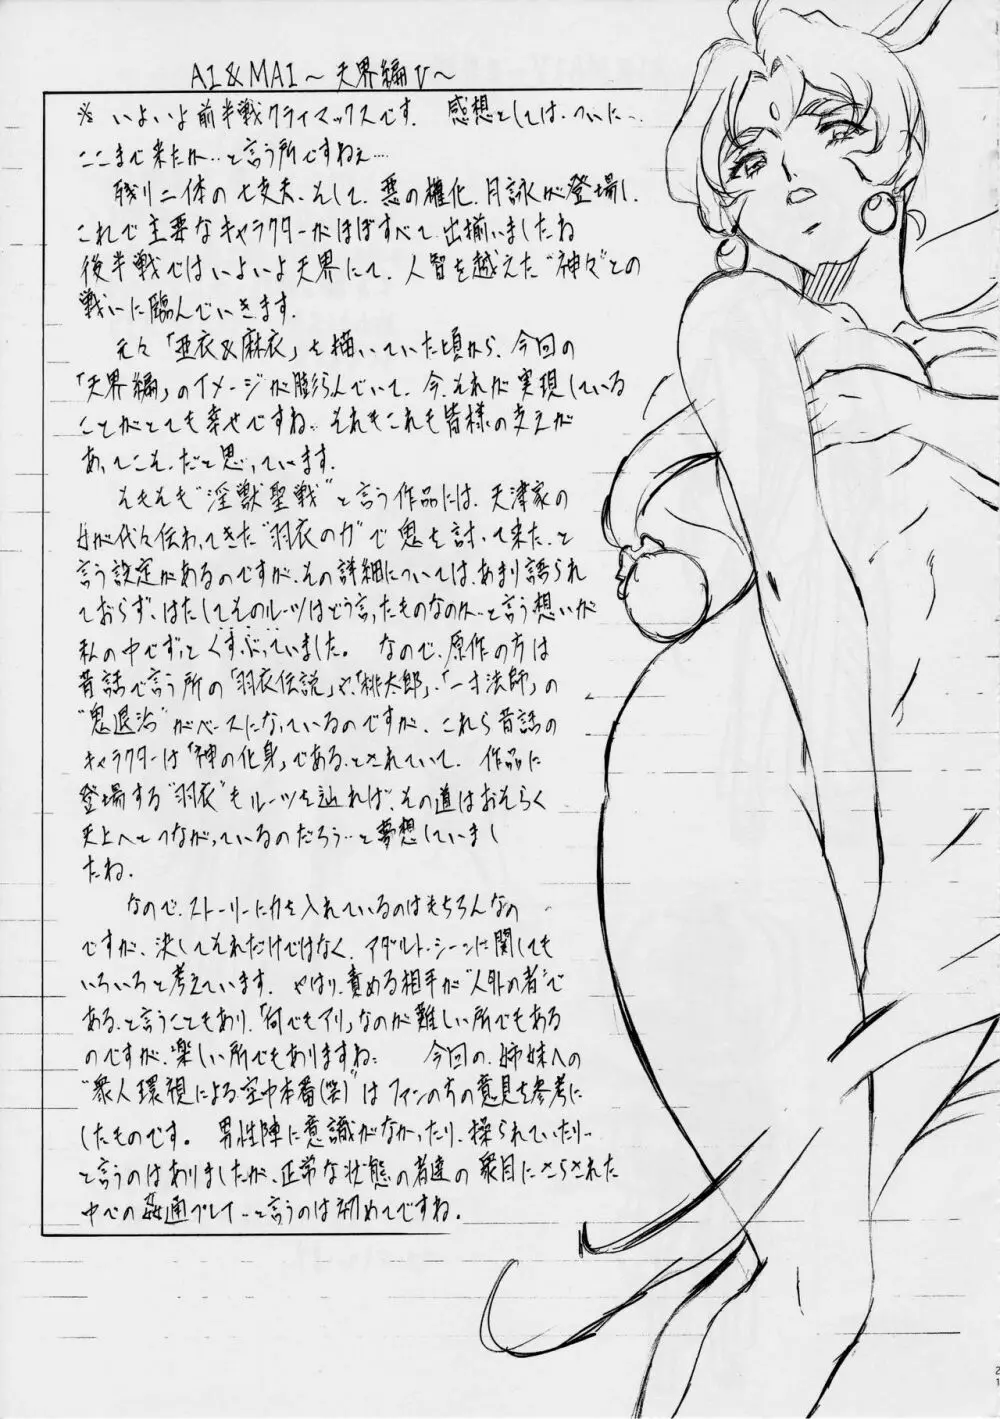 AI&MAI～天界編Ⅴ～
※いよいよ前半戦クライマックスです。 感想としては、ついに…
ここまで来たか…と言う所ですねぇ…
残り二体の七支夫、そして、悪の権化、月詠が登場し、
これで主要なキャラクターがほぼすべて、出揃いましたね
後半戦ではいよいよ天界にて、人智を越えた“神々”との
戦いに臨んでいきます。
元々「亜衣&麻衣」を描いていた頃から、今回の
「天界編」のイメージが膨らんでいて、今、それが実現している
ことがとても幸せですね… それもこれも皆様の支えが
あってこそ、だと思っています。
そもそも“淫獣聖戦”と言う作品には、天津家の
女が代々伝わってきた“羽衣の力”で鬼を討って来た、と
言う設定があるのですが、その詳細については、あまり語られ
ておらず、はたしてそのルーツはどう言ったものなのか…と言う想いが
私の中でずっとくすぶっていました。 なので、原作の方は
昔話で言う所の「羽衣伝説」や、「桃太郎」、「一寸法師」の
“鬼退治”がベースになっているのですが、これら昔話の
キャラクターは「神の化身」である、とされていて、作品に
登場する“羽衣”もルーツを辿れば、その道はおそらく
天上へとつながっているのだろう…と夢想していまし
たね。
なので、ストーリーに力を入れているのはもちろんなの
ですが、決してそれだけではなく、アダルト・シーンに関しても
いろいろと考えています。やはり、責める相手が“人外の者”で
ある、と言うこともあり、「何でもアリ」なのが難しい所でもある
のですが、楽しい所でもありますね… 今回の、姉妹への
“衆人環視による空中本番(笑)”はファンの方の意見を参考に
したものです。 男性陣に意識がなかったり、操られていたり…
と言うのはありましたが、正常な状態の者達の衆目にさらされた
中での姦通プレイ…と言うのは初めてですね。
21